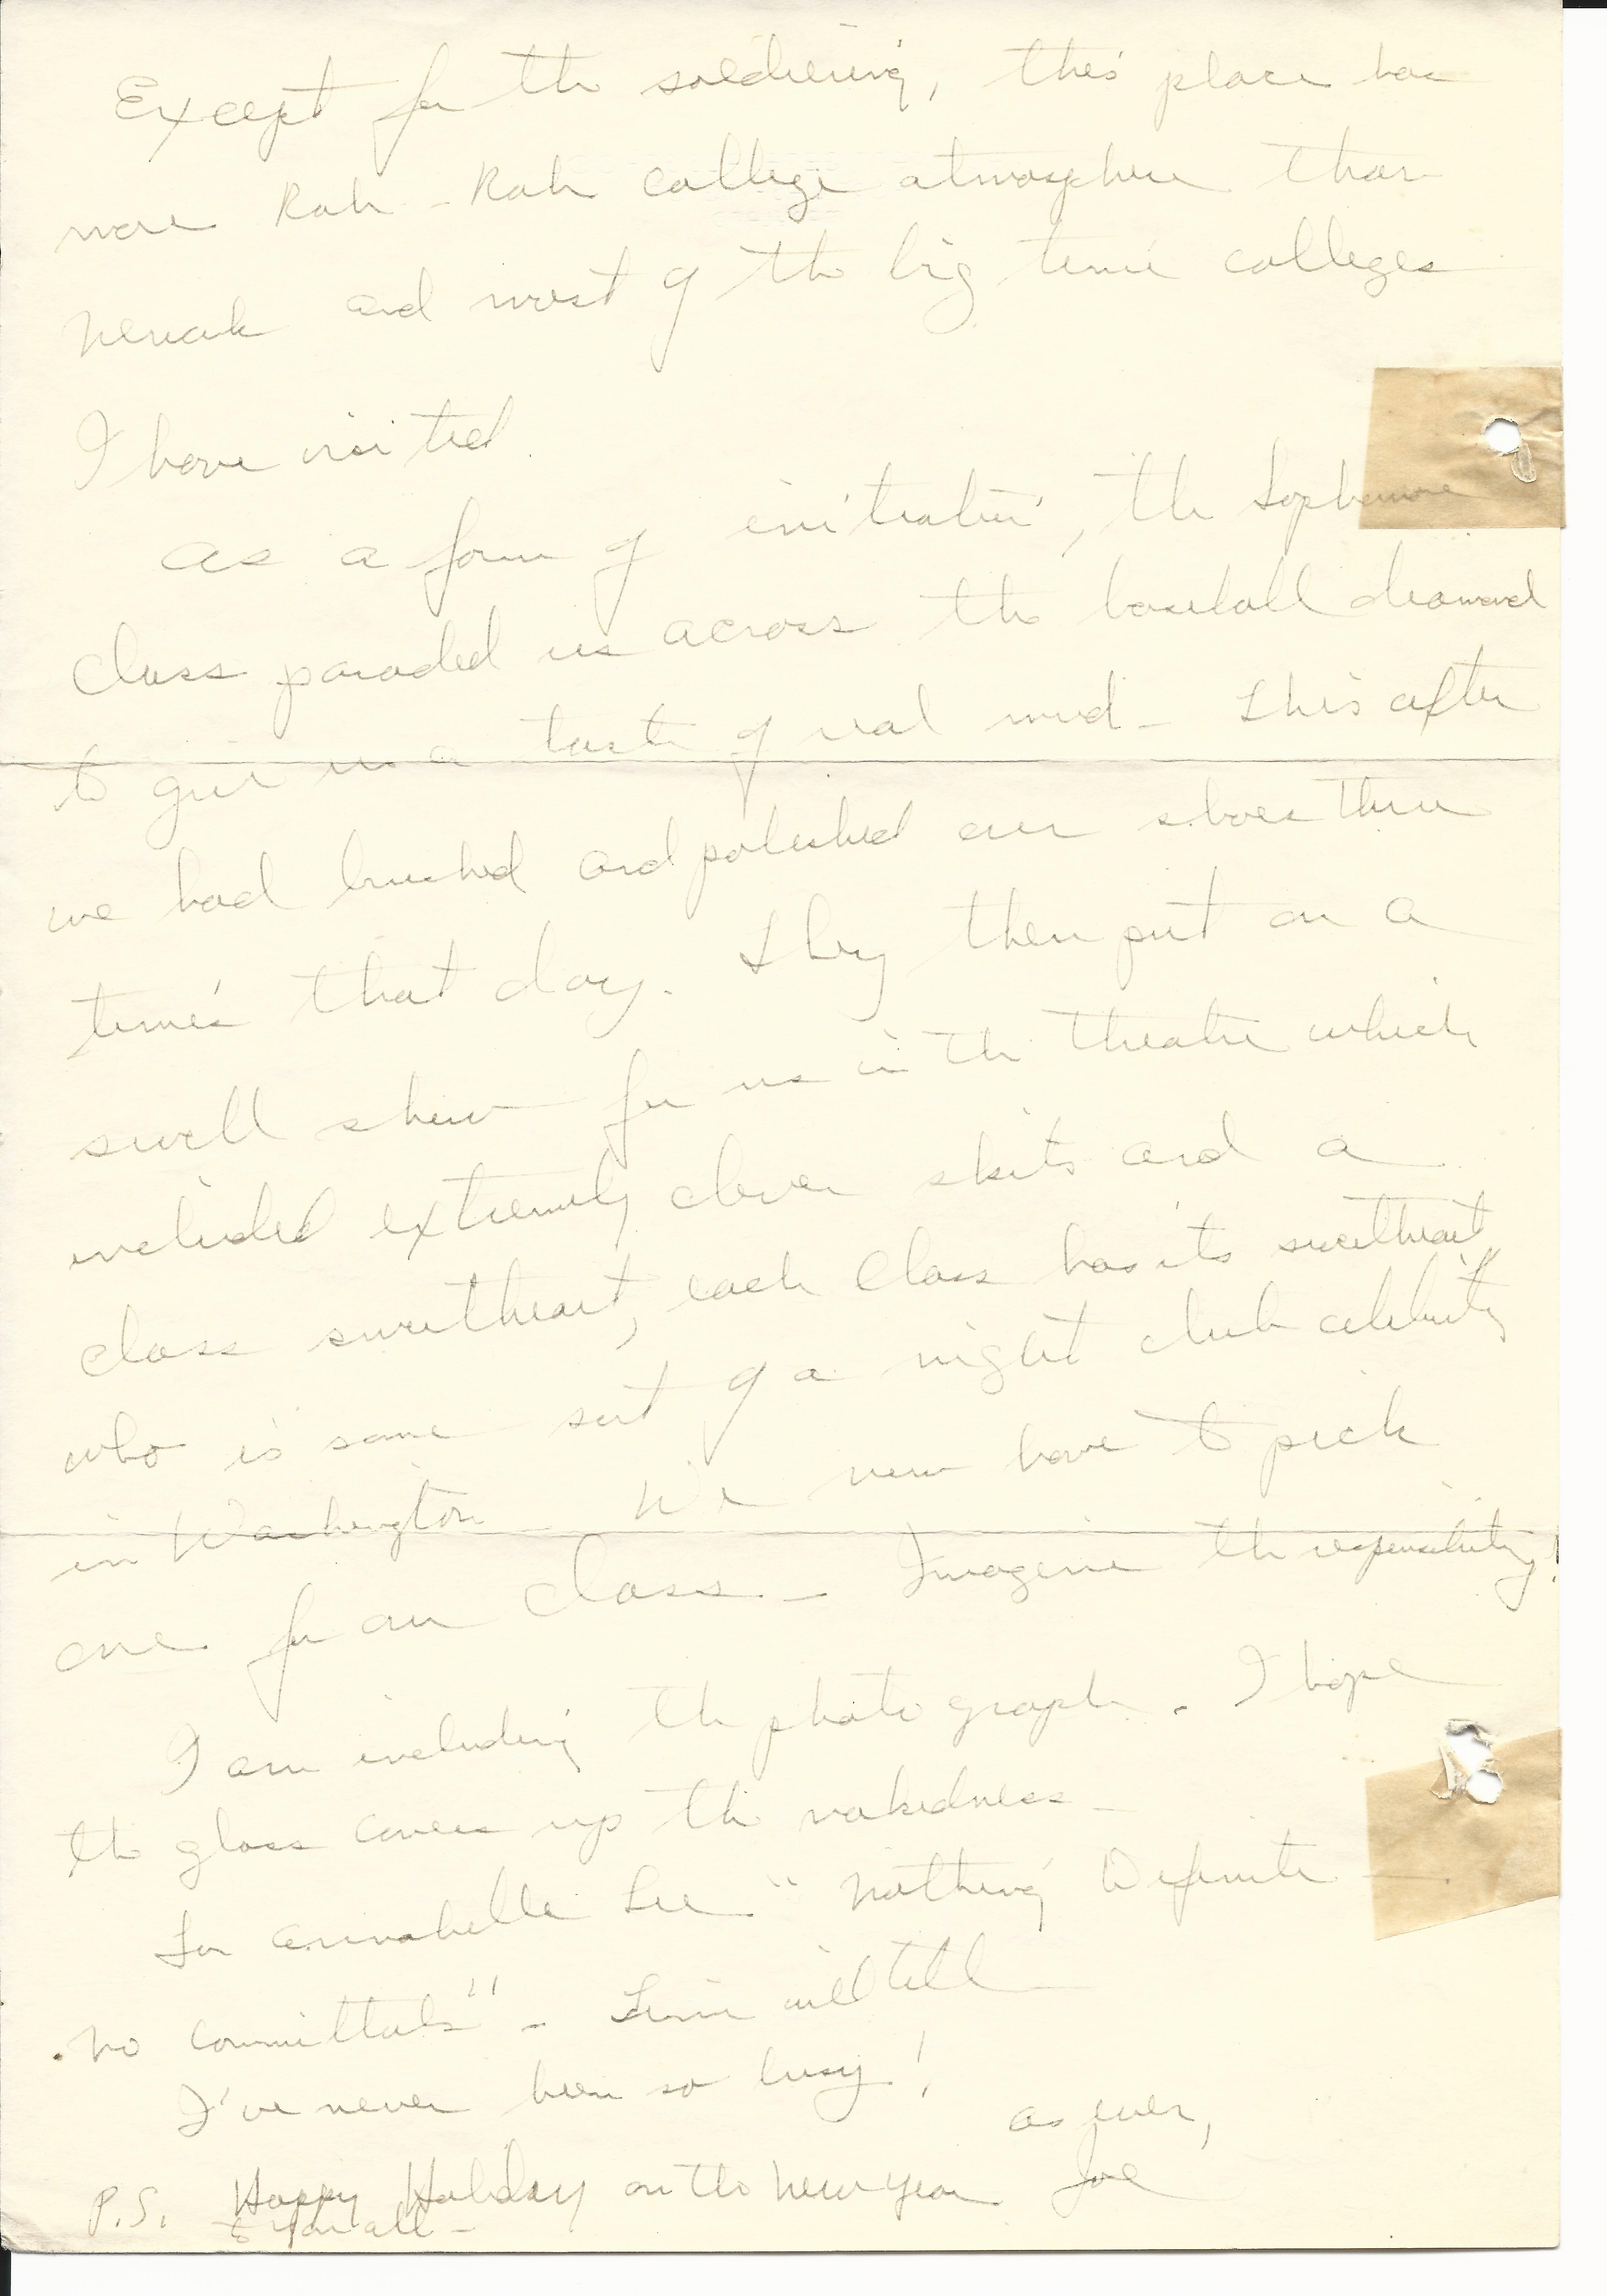 Except for the soldiering, this place has
more Rah-Rah college atmosphere than
Newark and most of the big time colleges
I have visited.
As a form of initiation, the Sophomore
Class paraded us across the baseball diamond
to give us a taste of real mud - This after
we had brushed and polished our shoes three
times that day. They then put on a
swell show for us in the theatre which
included extremely clever skits and a
class sweetheart, each Class has its sweetheart"
who is some sort of a night club celebrity
in Washington - We now have to pick
one for our Class - Imagine the responsibility!
I am including the photograph. I hope
the glass covers up the nakedness -
For Annabelle Lee "Nothing Definite -
no committals" - Time will tell
I've never been so busy!
As ever,
Joe
P.S. Happy Holiday on the New Year
to you all -